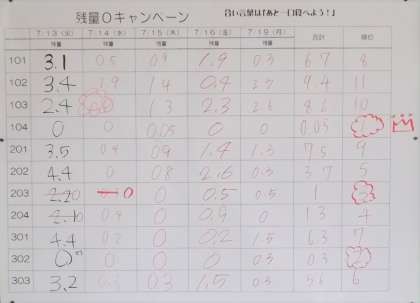 残量０キャンペーン 合い言葉は「あと一口食べよう！」
7/13(火) 7/14(水) 7/15(木) 7/16(金) 7/19(月) 合計 順位
残量 残量 残量 残量 残量
101 3.1 0.5 0.9 1.9 0.3 6.7 8
102 3.4 1.4 0.4 2.3 9.4 11
103 2.4 1.3 2.3 2.6 8.6 10
104 0 0 0.05 0 0 0.05
201 3.5 0.4 0.9 1.4 1.3 7.5 9
202 4.4 0 0.8 2.6 0.3 5
203 0 0 0.5 0.5 1
204 0.4 0 0.9 0 1.3 4
301 4.4 0.2 0 0.2 1.5 6.3 7
302 0 0 0 0 0.3 0.3 2
303 3.2 0.3 0.3 1.5 0.3 5.6 6